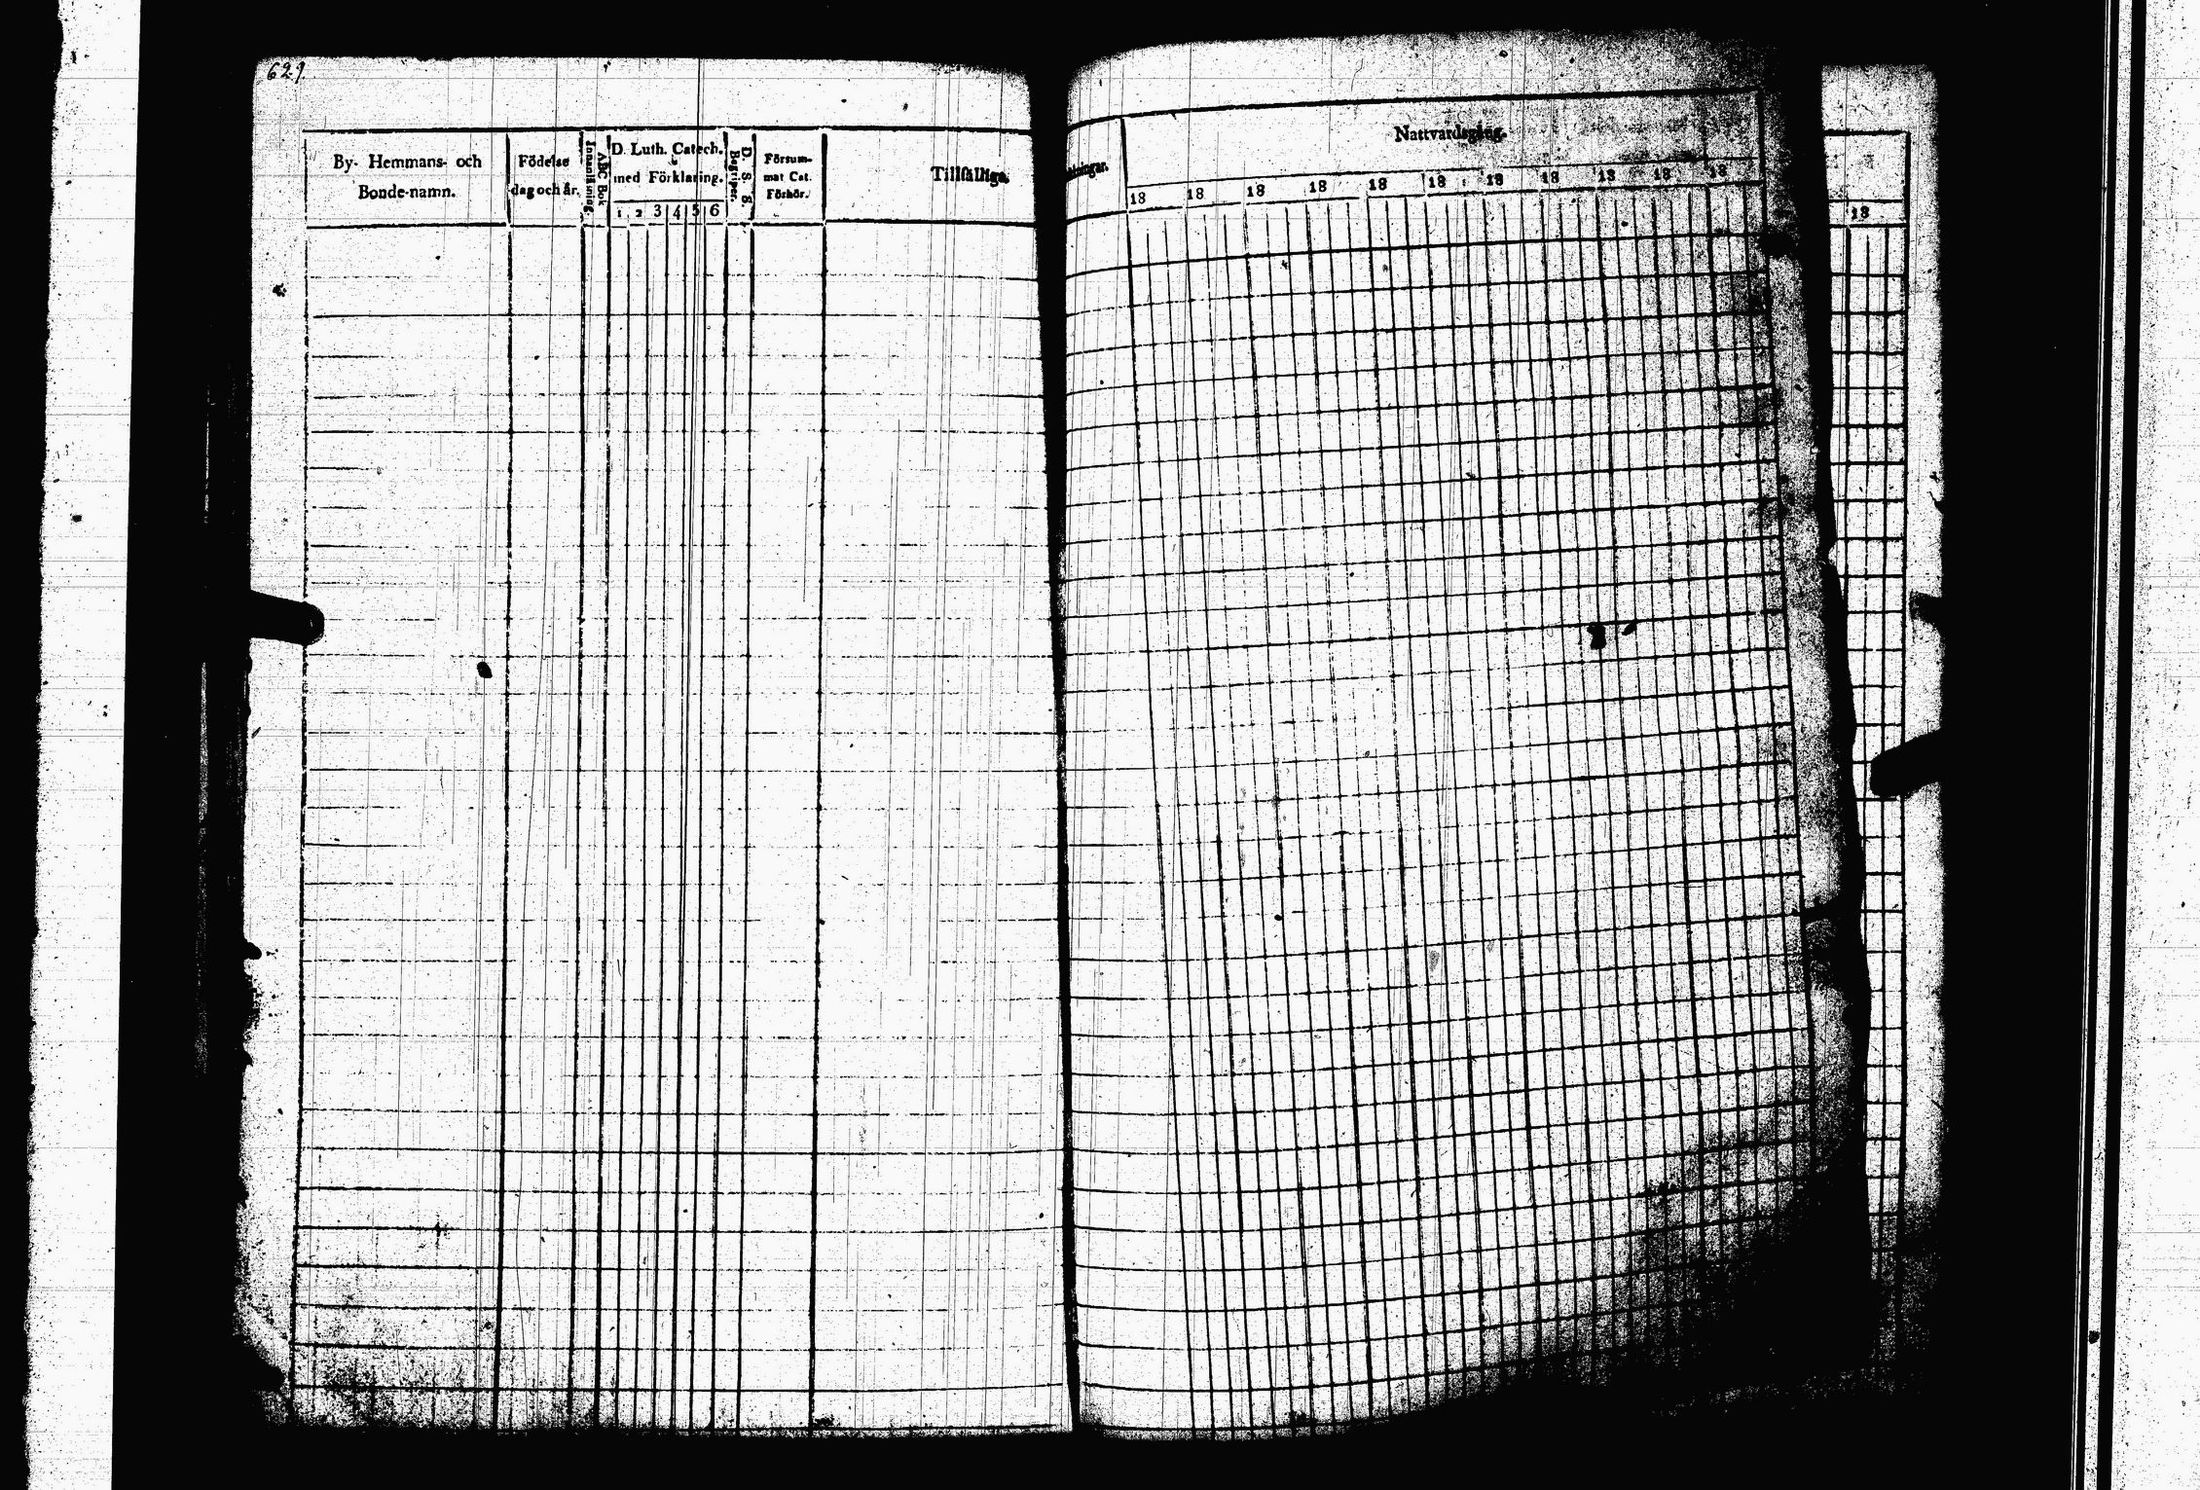 629
By- Hemmans- och
Bonde-namn.
Födelse
dag och år.
Innanläsning.
ABC Bok
D. Luth. Catech.
med Förklaring.
1 2 3 4 5 6
D. S. F.
Begriper.
Försum-
mat Cat.
Förhör.
Tillfälliga
Nattvardsgång.
18 18 18 18 18 18 18 18 18 18 18
18